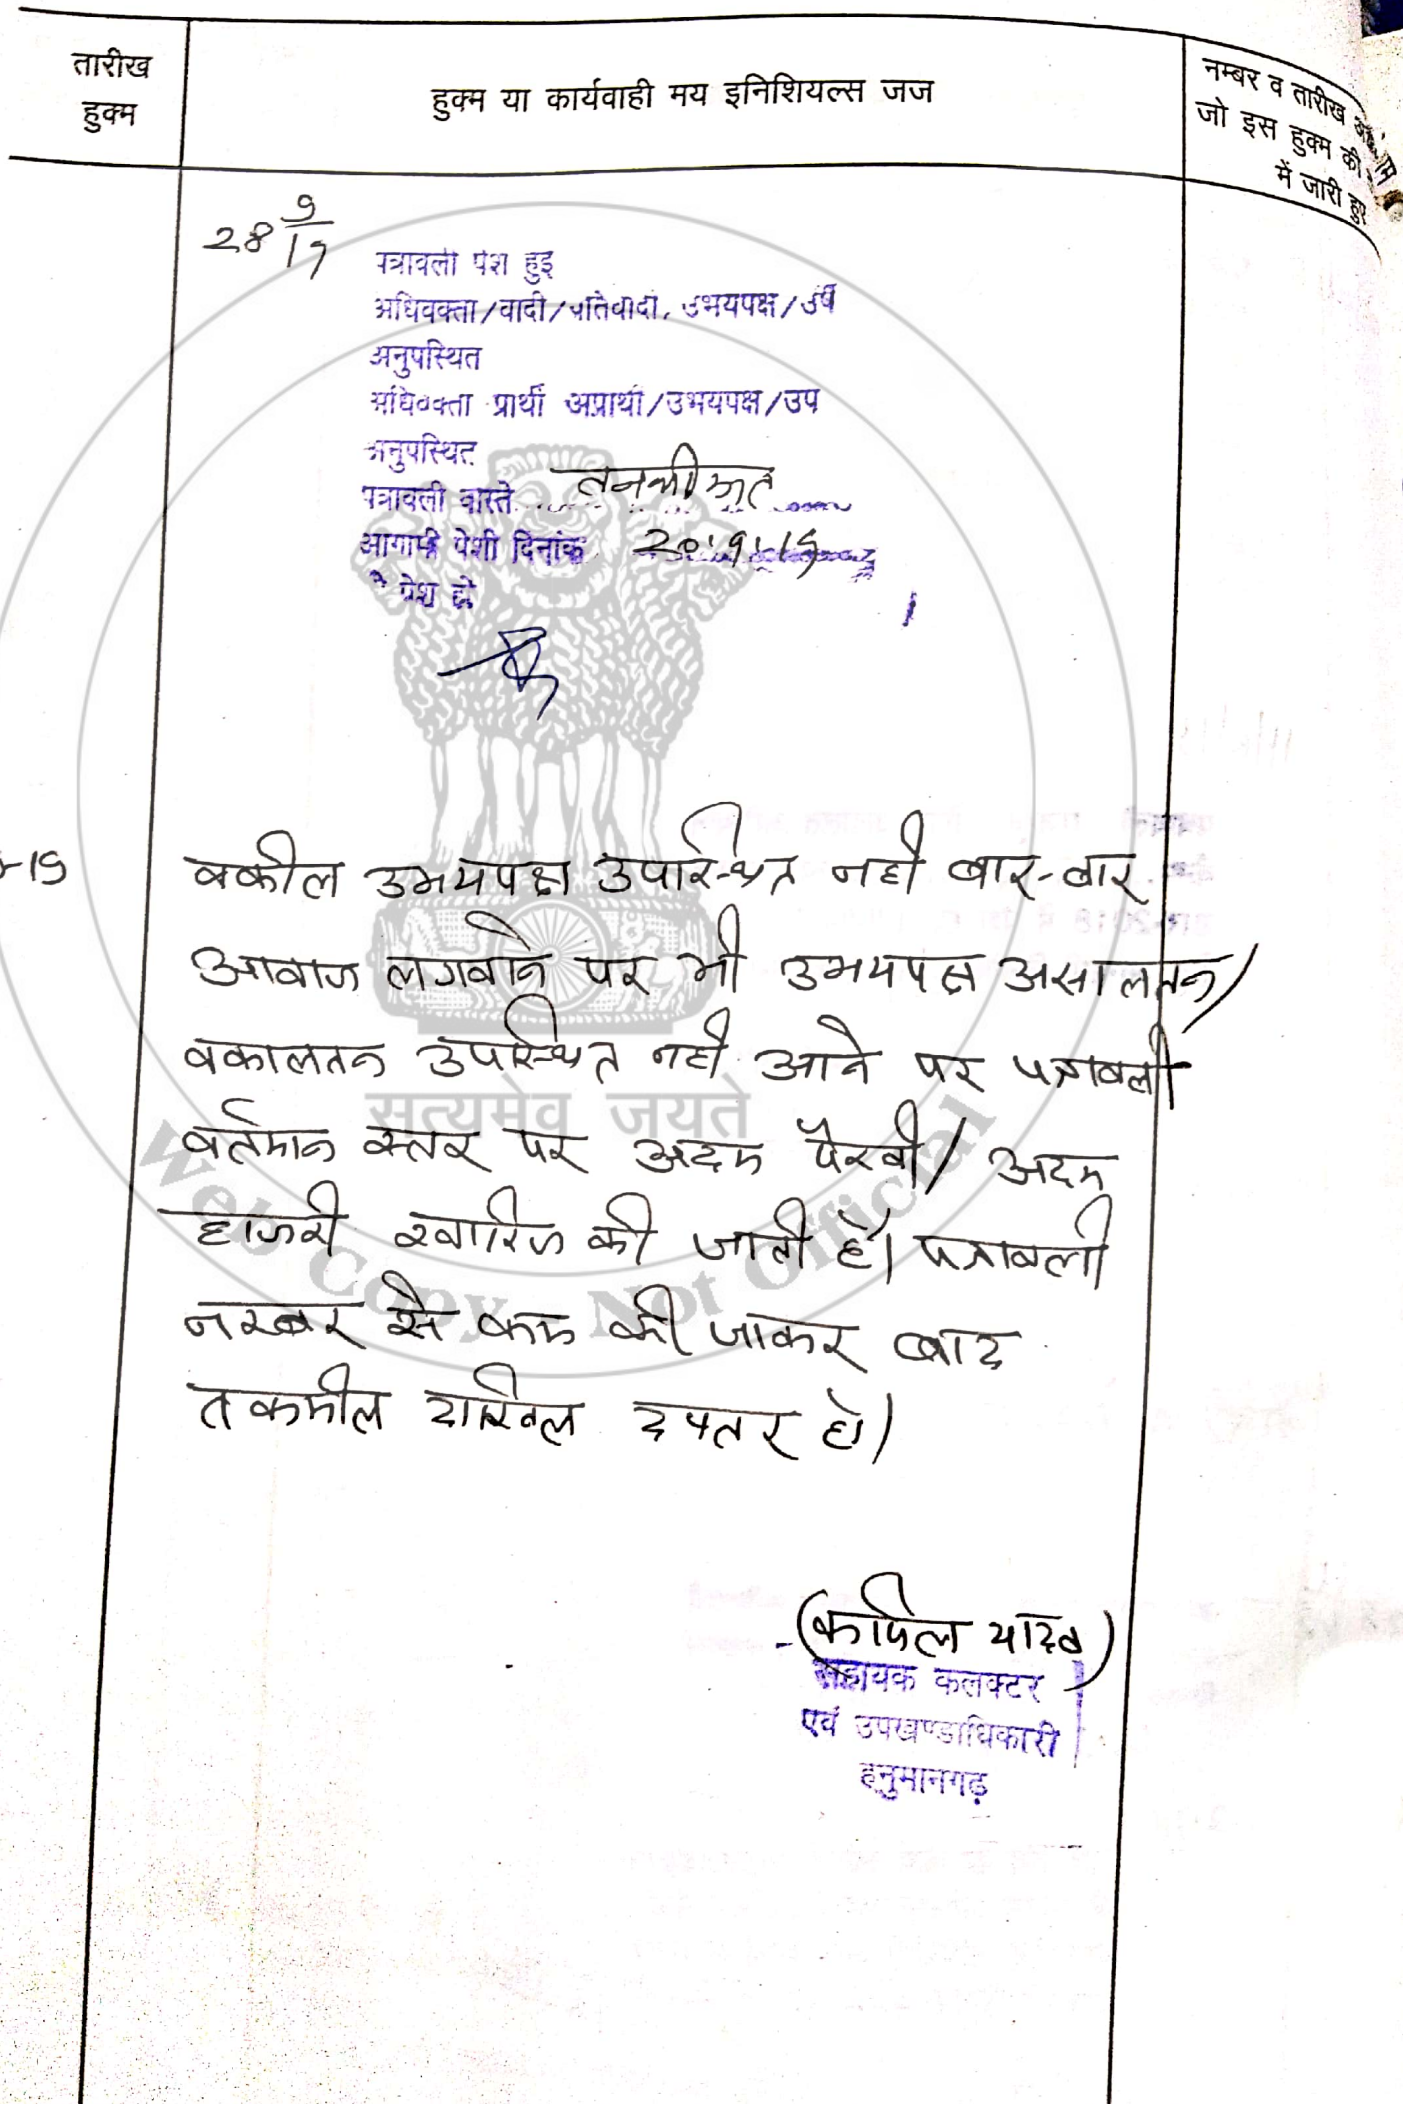 तारीख
हुक्म
हुक्म या कार्यवाही मय इनिशियल्स जज
नम्बर व तारीख
जो इस हुक्म की
में जारी हुए
28 9/17
पत्रावली पेश हुई
अधिवक्ता/वादी/प्रतिवादी, उभयपक्ष/उप
अनुपस्थित
अधिवक्ता प्रार्थी अप्रार्थी/उभयपक्ष/उप
अनुपस्थित
पत्रावली वास्ते
आगामी पेशी दिनांक
पेश हो
-19
वकील उभयपक्ष उपस्थित नही बार-बार
आवाज लगवाने पर भी उभयपक्ष असालतन/
वकालतन उपस्थित नही आने पर पत्रावली
वर्तमान स्तर पर अदम पैरवी/ अदम
हाजरी खारिज की जाती है। पत्रावली
नम्बर से कम की जाकर बाद
तकमील दाखिल दफ्तर हो।
सत्यमेव जयते
Web Copy - Not Official
(कपिल यादव)
सहायक कलक्टर
एवं उपखण्डाधिकारी
हनुमानगढ़